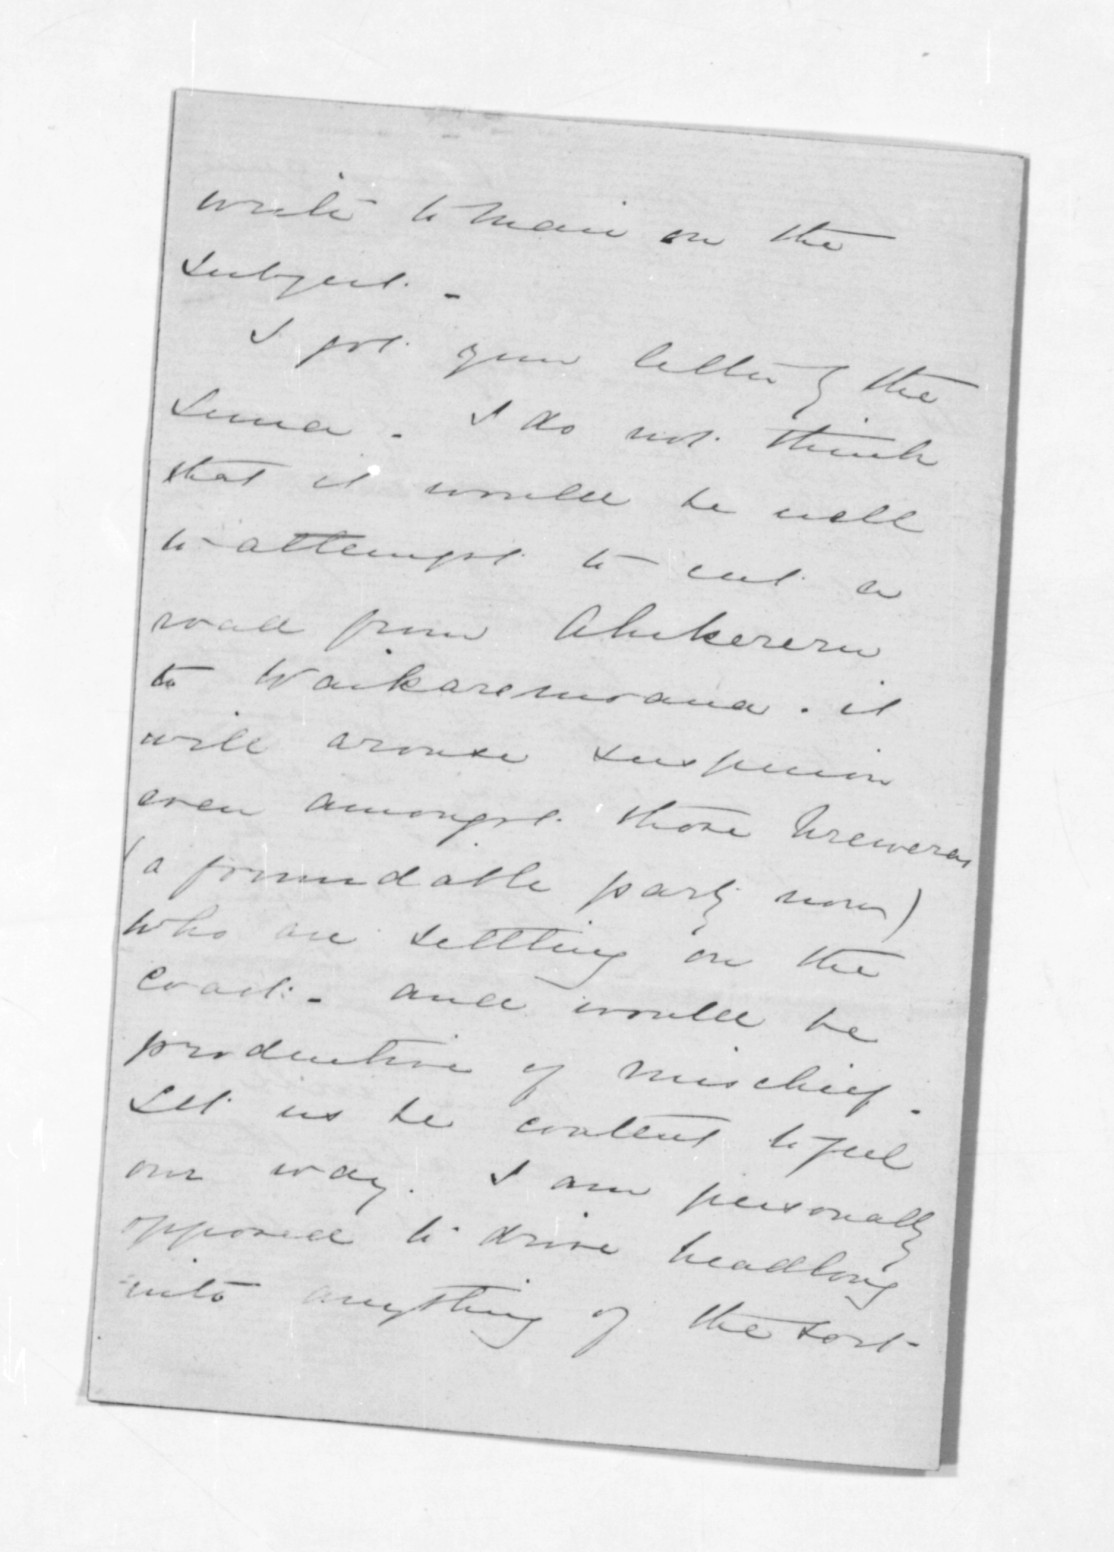 write to Mair on the
subject. -
I got your letter of the
Luna. I do not think
that it would be well
to attempt to cut a
road from Ahikereru
to Waikaremoana. it
will arouse suspicion
even amongst those Ureweras
(a formidable party now)
who are settling on the
coast. - and would be
productive of mischief.
Let us be content to feel
our way. I am personally
opposed to drive headlong
into anything of the sort -